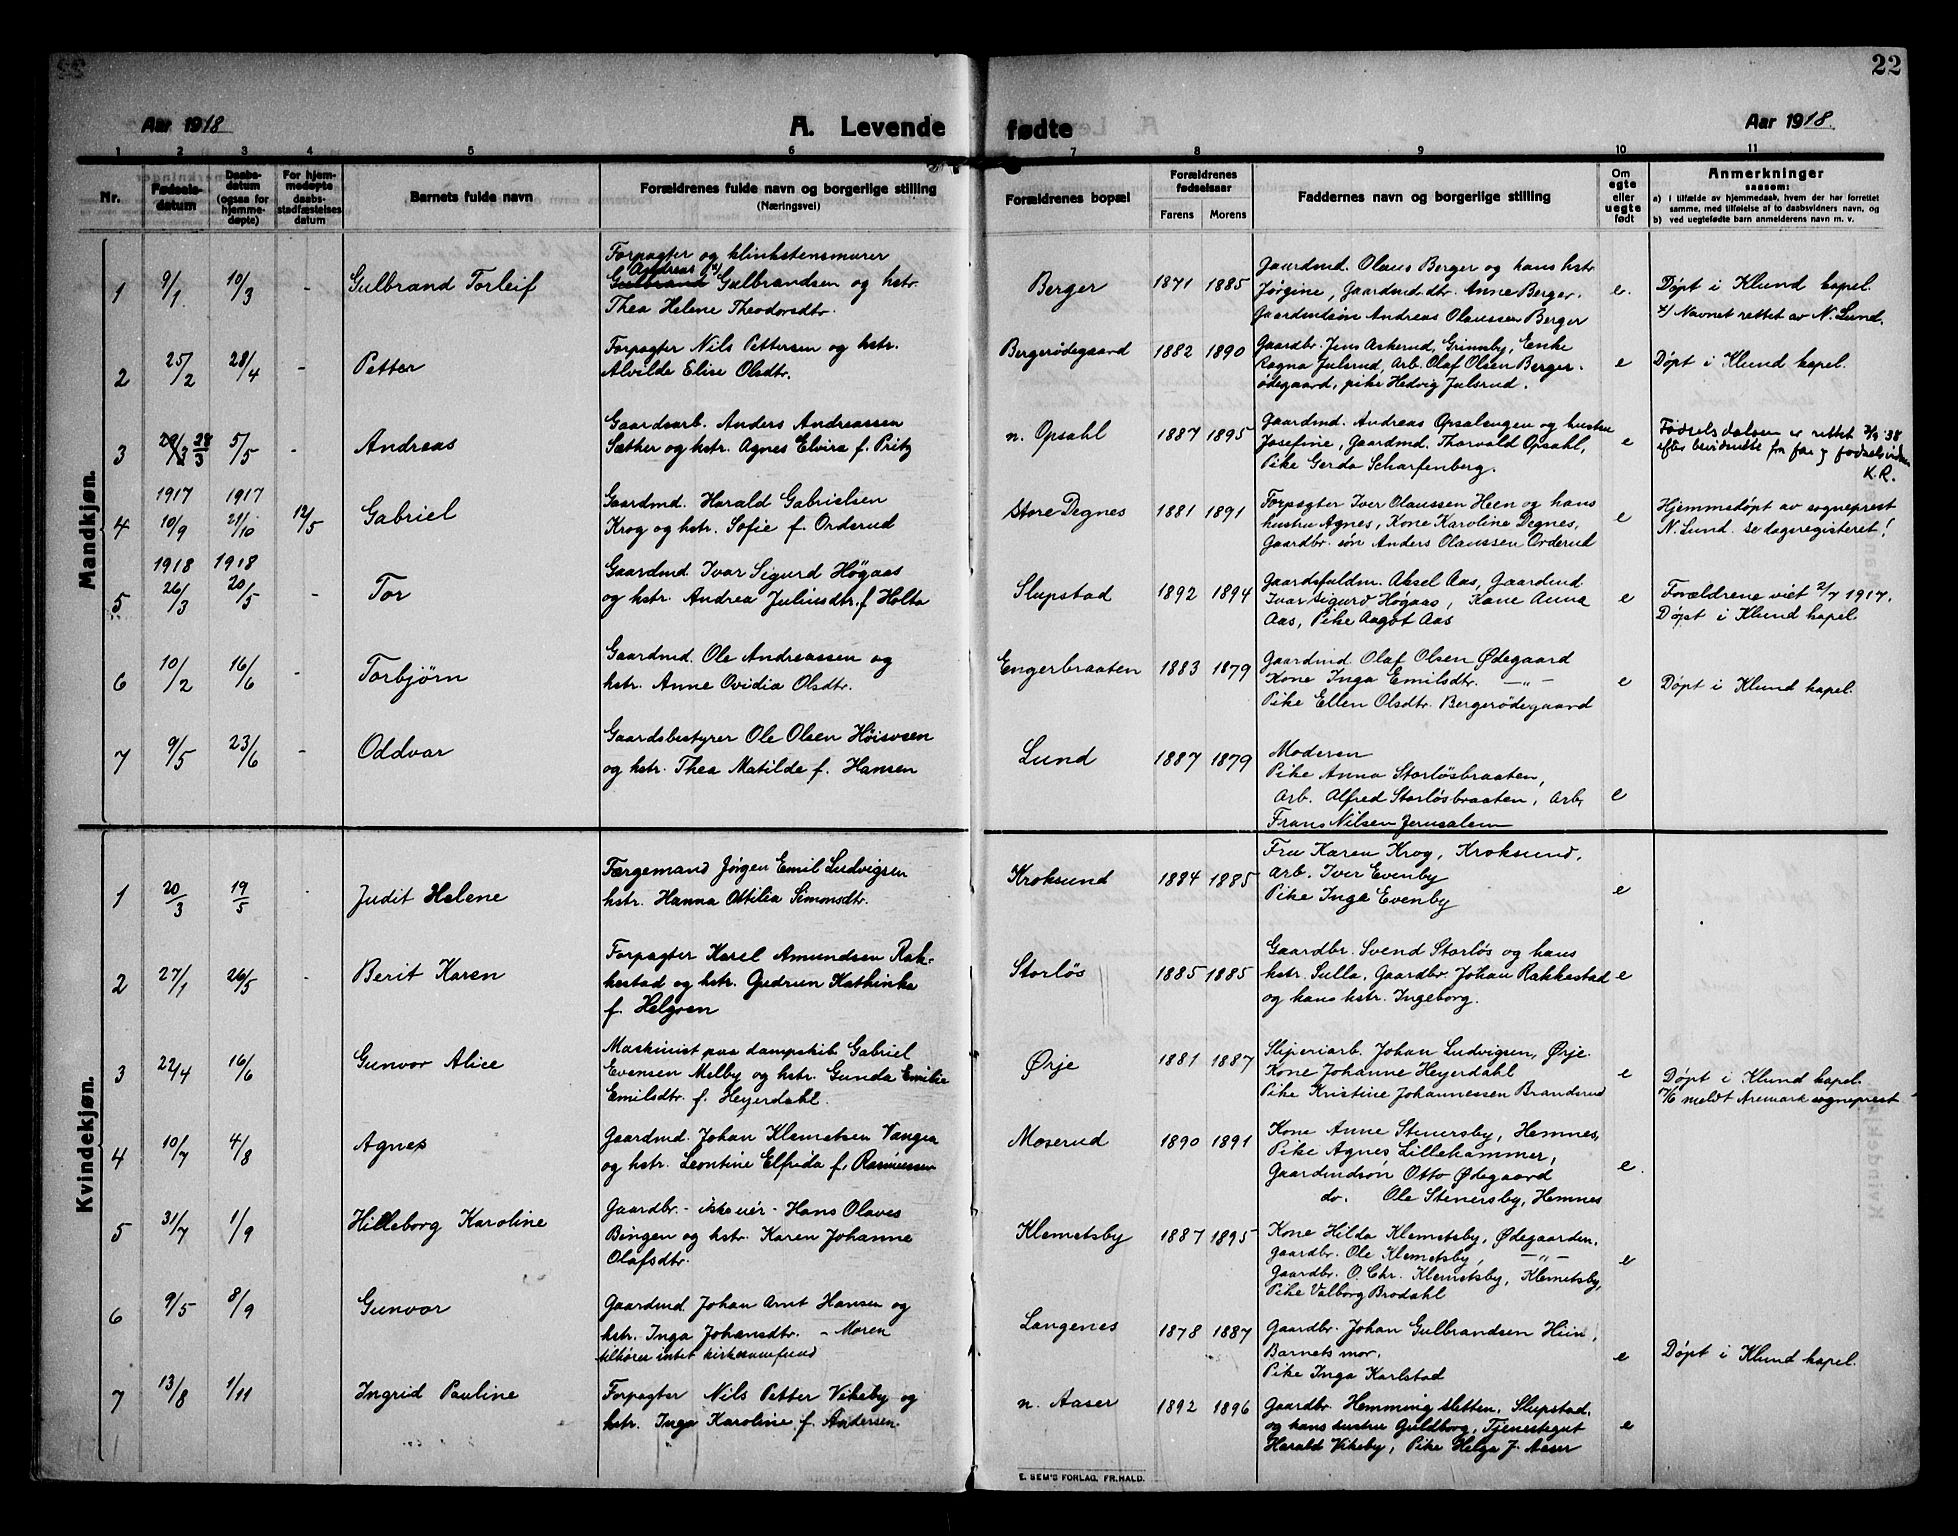 22
Aar 1918
A. Levende
fødte
Aar 1918.
1 2 3 4 5 6 7 8 9 10 11
Nr.
Fødsels-
datum
Daabs-
datum
(ogsaa for
hjemme-
døpte)
For hjem-
medøpte
daabs-
stadfæstelses
datum
Barnets fulde navn
Forældrenes fulde navn og borgerlige stilling
(Næringsvei)
Forældrenes bopæl
Forældrenes
fødselsaar
Farens Morens
Faddernes navn og borgerlige stilling
Om
egte
eller
uegte
født
Anmerkninger
saasom:
a) i tilfælde av hjemmedaab, hvem der har forrettet
samme, med tilføielse af to daabsvidners navn, og
b) ved uegtefødte barn anmelderens navn m. v.
Mandkjøn.
1 9/1. 10/3 - Gulbrand Torleif
Forpagter og klinkstensmurer
Andreas x)
Gulbrand Gulbrandsen og hstr.
Thea Helene Theodorsdtr.
Berger 1871 1885
Gaardmd. Olaus Berger og hans hstr.
Jørgine, Gaardmd.dtr. Anne Berger.
Gaardmdsøn Andreas Olaussen Berger
e.
Døpt i Klund kapel.
x/ Navnet rettet av N. Lund.
2 25/2 28/4 - Petter
Forpagter Nils Pettersen og hstr.
Alvilde Elise Olsdtr.
Bergerødegaard 1882 1890
Gaardbr. Jens Askerud, Grimsby, Enke
Ragna Julsrud, Arb. Olaf Olsen Berger-
ødegaard, pike Hedvig Julsrud.
e
Døpt i Klund kapel.
3 29/3 28/3 5/5 - Andreas
Gaardsarb. Anders Andreassen
Sæther og hstr. Agnes Elvira f. Pritz
n. Opsahl 1887 1895
Gaardmd. Andreas Opsalengen og hustru
Josefine, Gaardmd. Thorvald Opsahl,
Pike Gerda Scharfenberg.
e
Fødselsdatoen er rettet 3/9 38
efter bevidnelse fra far og fødselsvidne
K.R.
1917 1917
4 10/9 21/10 12/5 Gabriel
Gaardmd. Harald Gabrielsen
Krog og hstr. Sofie f. Orderud
Store Degnes 1881 1891
Forpagter Iver Olaussen Heen og hans
hustru Agnes, Kone Karoline Degnes,
Gaardbr. søn Anders Olaussen Orderud
e
Hjemmedøpt av sogneprest
N. Lund. se dagregisteret!
1918 1918
5 26/3 20/5 - Tor
Gaardmd. Ivar Sigurd Högaas
og hstr. Andrea Juliusdtr. f Holta
Slupstad 1892 1894
Gaardsfuldm. Aksel Aas, Gaardmd.
Ivar Sigurd Högaas, Kone Anna
Aas, Pike Aagot Aas
e
Forældrene viet 2/7 1917.
Døpt i Klund kapel.
6 10/2 16/6 - Torbjørn
Gaardmd. Ole Andreassen og
hstr. Anne Ovidia Olsdtr.
Engerbraaten 1883 1879
Gaardmd. Olaf Olsen Ødegaard
Kone Inga Emilsdtr. —„—
Pike Ellen Olsdtr. Bergerødegaard
e
Døpt i Klund kapel.
7 9/5 23/6 - Oddvar
Gaardsbestyrer Ole Olsen Höisveen
og hstr. Thea Matilde f. Hansen
Lund 1887 1879
Moderen
Pike Anna Storlösbraaten,
Arb. Alfred Storlösbraaten, Arb.
Frans Nilsen Jerusalem
e
Kvindekjøn.
1 20/3 19/5 - Judit Helene
Færgemand Jörgen Emil Ludvigsen
hstr. Hanna Ottilia Simonsdtr.
Kroksund 1884 1885
Fru Karen Krog, Kroksund,
Arb. Iver Evenby
Pike Inga Evenby
e
2 27/1 26/5 - Berit Karen
Forpagter Karel Amundsen Rak-
kestad og hstr. Gudrun Kathinka
f. Helgren
Storlös 1885 1885
Gaardbr. Svend Storlös og hans
hstr. Sulla, Gaardbr. Johan Rakkestad
og hans hstr. Ingeborg.
e
3 22/4 16/6 Gunvor Alice
Maskinist paa dampskib. Gabriel
Evensen Melby og hstr. Gunda Emilie
Emilsdtr. f. Heyerdahl.
Ørje 1881 1887
Sliperiarb. Johan Ludvigsen, Ørje.
Kone Johanne Heyerdahl
Pike Kristine Johannessen Branderud
e
Døpt i Klund kapel.
17/6 meldt Aremark sogneprest
4 10/7 4/8 Agnes
Gaardmd. Johan Klemetsen Vangen
og hstr. Leontine Elfrida f. Rasmussen
Moserud 1890 1891
Kone Anne Stenersby, Hemnes,
Pike Agnes Lillehammer,
Gaardmdsøn Otto Ødegaard
do. Ole Stenersby, Hemnes
e.
5 31/7 1/9 Hilleborg Karoline
Gaardbr. - ikke eier - Hans Olaves
Bingen og hstr. Karen Johanne
Olafsdtr.
Klemetsby 1887 1895
Kone Hilda Klemetsby, Ødegaarden.
Gaardbr. Ole Klemetsby, —„—
Gaardbr. O. Chr. Klemetsby, Klemetsby,
Pike Valborg Brodahl
e
6 9/5 8/9 Gunvor
Gaardmd. Johan Arnt Hansen og
hstr. Inga Johansdtr. - Moren
tilhører intet kirkesamfund
Langenes 1878 1887
Gaardbr. Johan Gulbrandsen Hiin,
Barnets mor.
Pike Inga Karlstad
e
Døpt i Klund kapel.
7 13/8 1/11 Ingrid Pauline
Forpagter Nils Petter Vikeby og
hstr. Inga Karoline f. Andersen
n. Aaser 1892 1896
Gaardbr. Hemming sletten, Slupstad,
og hans hustru Guldborg, Tjenestegut
Harald Vikeby, Pike Helga J. Aaser
e
E. SEM'S FORLAG, FR.HALD.